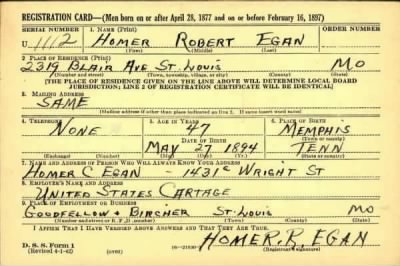 REGISTRATION CARD—(Men born on or after April 28, 1877 and on or before February 16, 1897)
SERIAL NUMBER 1. NAME (Print) ORDER NUMBER
U 1112 HOMER ROBERT EGAN
(First) (Middle) (Last)
2. PLACE OF RESIDENCE (Print)
2319 BLAIR AVE ST. LOUIS MO
(Number and street) (Town, township, village, or city) (County) (State)
[THE PLACE OF RESIDENCE GIVEN ON THE LINE ABOVE WILL DETERMINE LOCAL BOARD
JURISDICTION; LINE 2 OF REGISTRATION CERTIFICATE WILL BE IDENTICAL]
3. MAILING ADDRESS
SAME
[Mailing address if other than place indicated on line 2. If same insert word same]
4. TELEPHONE 5. AGE IN YEARS 6. PLACE OF BIRTH
NONE 47 MEMPHIS
DATE OF BIRTH (Town or county)
MAY 27 1894 TENN
(Exchange) (Number) (Mo.) (Day) (Yr.) (State or country)
7. NAME AND ADDRESS OF PERSON WHO WILL ALWAYS KNOW YOUR ADDRESS
HOMER C EGAN - 1431 WRIGHT ST
8. EMPLOYER'S NAME AND ADDRESS
UNITED STATES CARTAGE
9. PLACE OF EMPLOYMENT OR BUSINESS
GOODFELLOW & BIRCHER ST. LOUIS MO
(Number and street or R. F. D. number) (Town) (County) (State)
I AFFIRM THAT I HAVE VERIFIED ABOVE ANSWERS AND THAT THEY ARE TRUE.
D. S. S. Form 1 HOMER. R. EGAN
(Revised 4-1-42) (over) (Registrant's signature)